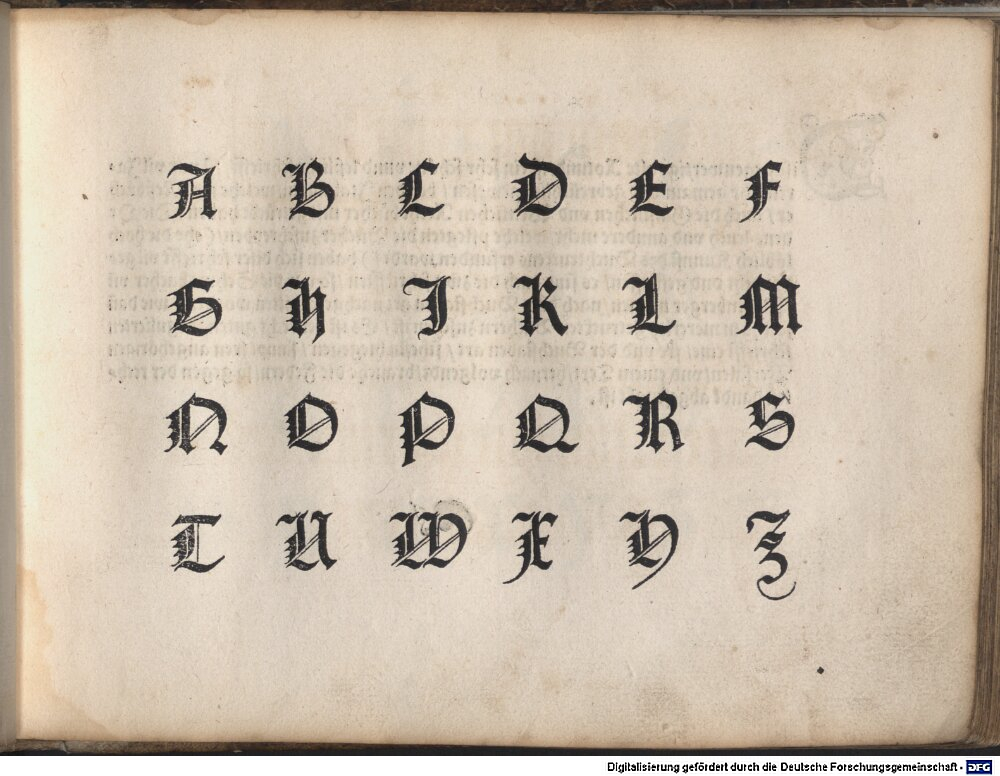 A B C D E F
G H I K L M
N O P Q R S
T U W X Y Z
Digitalisierung gefördert durch die Deutsche Forschungsgemeinschaft - DFG